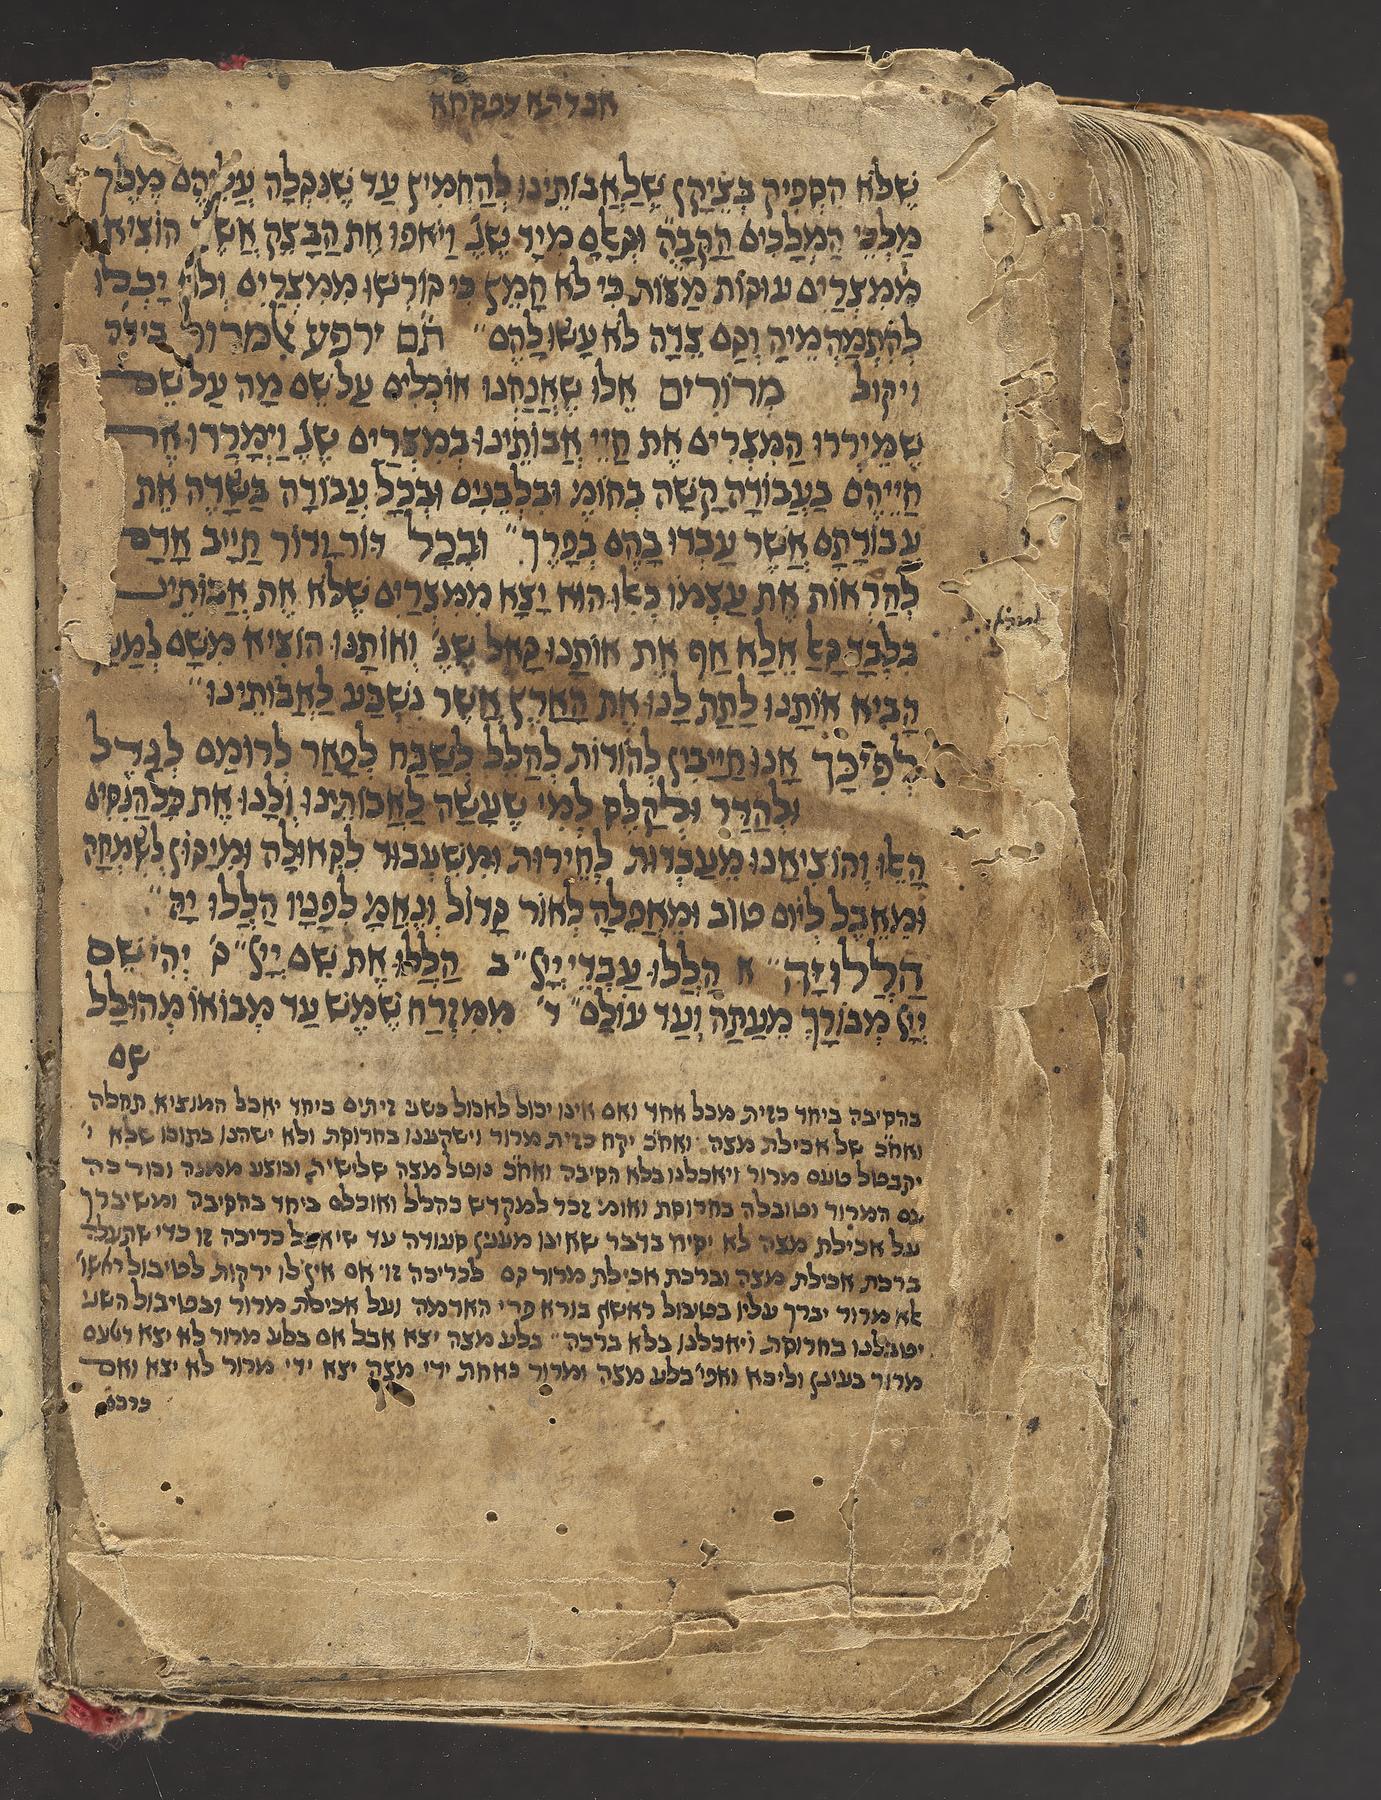 אגדתא דפסחא
שֶׁלֹא הִסְפִּיק בְּצֵיקָן שֶׁלַאֲבוֹתֵינוּ לְהַחְמִיץ עַד שֶׁנִגְלָה עֲלֵיהֶם מֶלֶךְ
מַלְכֵי הַמְלָכִים הַקָבָּ״ה וּגְאָלָם מִיָד שֶׁנֶ׳ וַיֹאפוּ אֶת הַבָּצֵק אֲשֶׁר הוֹצִיאוּ
מִמִצְרַיִם עוּגוֹת מַצוֹת כִּי לֹא חָמֵץ כִּי גוֹרְשׁוּ מִמִצְרַיִם וְלֹא יָכְלוּ
לְהִתְמַהְמֵיהַּ וְגַם צֵדָה לֹא עָשׂוּ לָהֶם״ תם ירפע אלמרור בידה
ויקול מְרוֹרִים אֵלוּ שֶׁאֲנַחְנוּ אוֹכְלִים עַל שֵׁם מָה עַל שֵׁם
שֶׁמֵירְרוּ הַמִצְרִים אֶת חַיֵי אֲבוֹתֵינוּ בְּמִצְרַיִם שֶׁנֶ׳ וַיְמָרְרוּ אֶת
חַיֵיהֶם בַּעֲבוֹדָה קָשָׁה בְּחוֹמֶ׳ וּבִלְבֵנִים וּבְכָל עֲבוֹדָה בַּשָׂדֶה אֵת
עֲבוֹדָתָם אֲשֶׁר עָבְדוּ בָהֶם בְּפָרֶךְ״ וּבְכָל דּוֹר וָדוֹר חַיָיב אָדָם
לְהַרְאוֹת אֶת עַצְמוֹ כְּאִלוּ הוּא יָצָא מִמִצְרַיִם שֶׁלֹא אֶת אֲבוֹתֵינוּ
בִּלְבָד גָּאַ׳ אֶלָא אַף אֶת אוֹתָנוּ גָאַל שֶׁנֶ׳ וְאוֹתָנוּ הוֹצִיא מִשָׁם לְמַעַן
הָבִיא אוֹתָנוּ לָתֵת לָנוּ אֶת הָאָרֶץ אֲשֶׁר נִשְׁבַּע לַאֲבוֹתֵינוּ״
לְפִיכָךְ אָנוּ חַיָיבִין לְהוֹדוֹת לְהַלֵל לְשַׁבֵּחַ לְפָאֵר לְרוֹמֵם לְגַדֵל
וּלְהַדֵר וּלְקַלֵס לְמִי שֶׁעָשָׂה לַאֲבוֹתֵינוּ וְלָנוּ אֶת כָּל הַנִסִים
הָאֵלוּ וְהוֹצִיאָנוּ מֵעַבְדוּת לְחֵירוּת וּמִשִעְבוּד לִגְאוּלָה וּמִיָגוֹן לְשִׂמְחָה
וּמֵאֵבֶל לְיוֹם טוֹב וּמֵאֲפֵלָה לְאוֹר גָדוֹל וְנֹאמַ׳ לְפָנָיו הַלְלוּ יָהּ״
הַלְלוּיָהּ״ א הַלְלוּ עַבְדֵי יְיָ״ ב הַלְלוּ אֶת שֵׁם יְיָ״ ג׳ יְהִי שֵׁם
יְיָ מְבוֹרָךְ מֵעַתָה וְעַד עוֹלָם״ ד׳ מִמִזְרַח שֶׁמֶשׁ עַד מְבוֹאוֹ מְהוּלָל
שם
בהסיבה ביחד כזית מכל אחד ואם אינו יכול לאכול כשני זיתים ביחד יאכל המוציא תחלה
ואח״כ של אכילת מצה׃ ואח״כ יקח כזית מרור וישקענו בחרוסת ולא ישהנו בתוכו שלא י׳
יתבטל טעם מרור ויאכלנו בלא הסיבה ואח״כ נוטל מצה שלישית ובוצע ממנה וכורכה
עם המרור וטובלה בחרוסת ואומ׳ זכר למקדש כהלל ואוכלם ביחד בהסיבה ומשיברך
על אכילת מצה לא יסיח בדבר שאינו מענין סעודה עד שיאכל כריכה זו כדי שתעלה
ברכת אכילת מצה וברכת אכילת מרור גם לכריכה זו׃ אם אין לו ירקות לטיבול ראשון
אלא מרור יברך עליו בטיבול ראשון בורא פרי האדמה ועל אכילת מרור ובטיבול השני
יטבלנו בחרוסת ויאכלנו בלא ברכה״ בלע מצה יצא אבל אם בלע מרור לא יצא דטעם
מרור בעינן וליכא ואפי׳ בלע מצה ומרור כאחת ידי מצה יצא ידי מרור לא יצא ואם
כרכם